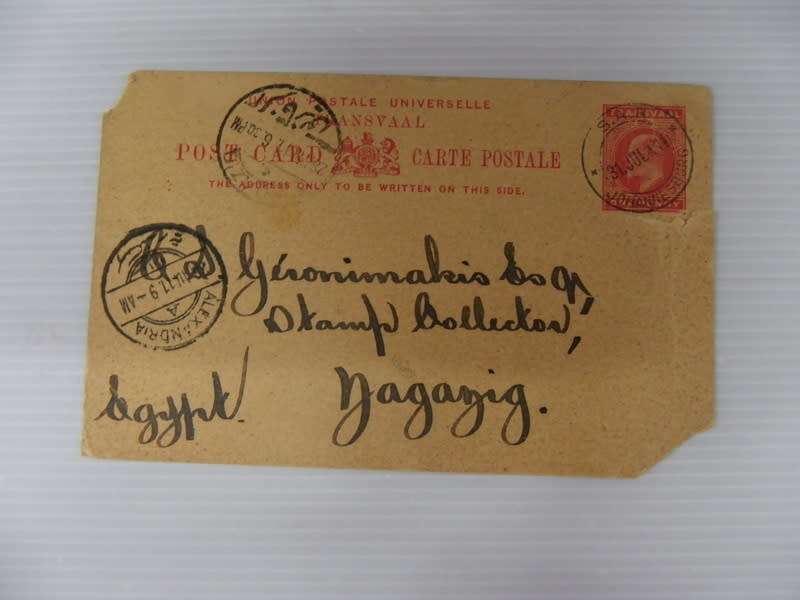 UNION POSTALE UNIVERSELLE
TRANSVAAL
POST CARD CARTE POSTALE
THE ADDRESS ONLY TO BE WRITTEN ON THIS SIDE.
TRANSVAAL
31 JUL
6.30 PM
ALEXANDRIA
A
11. 9 - AM
Géronimakis Esq,
Stamp Collector,
Zagazig.
Egypt